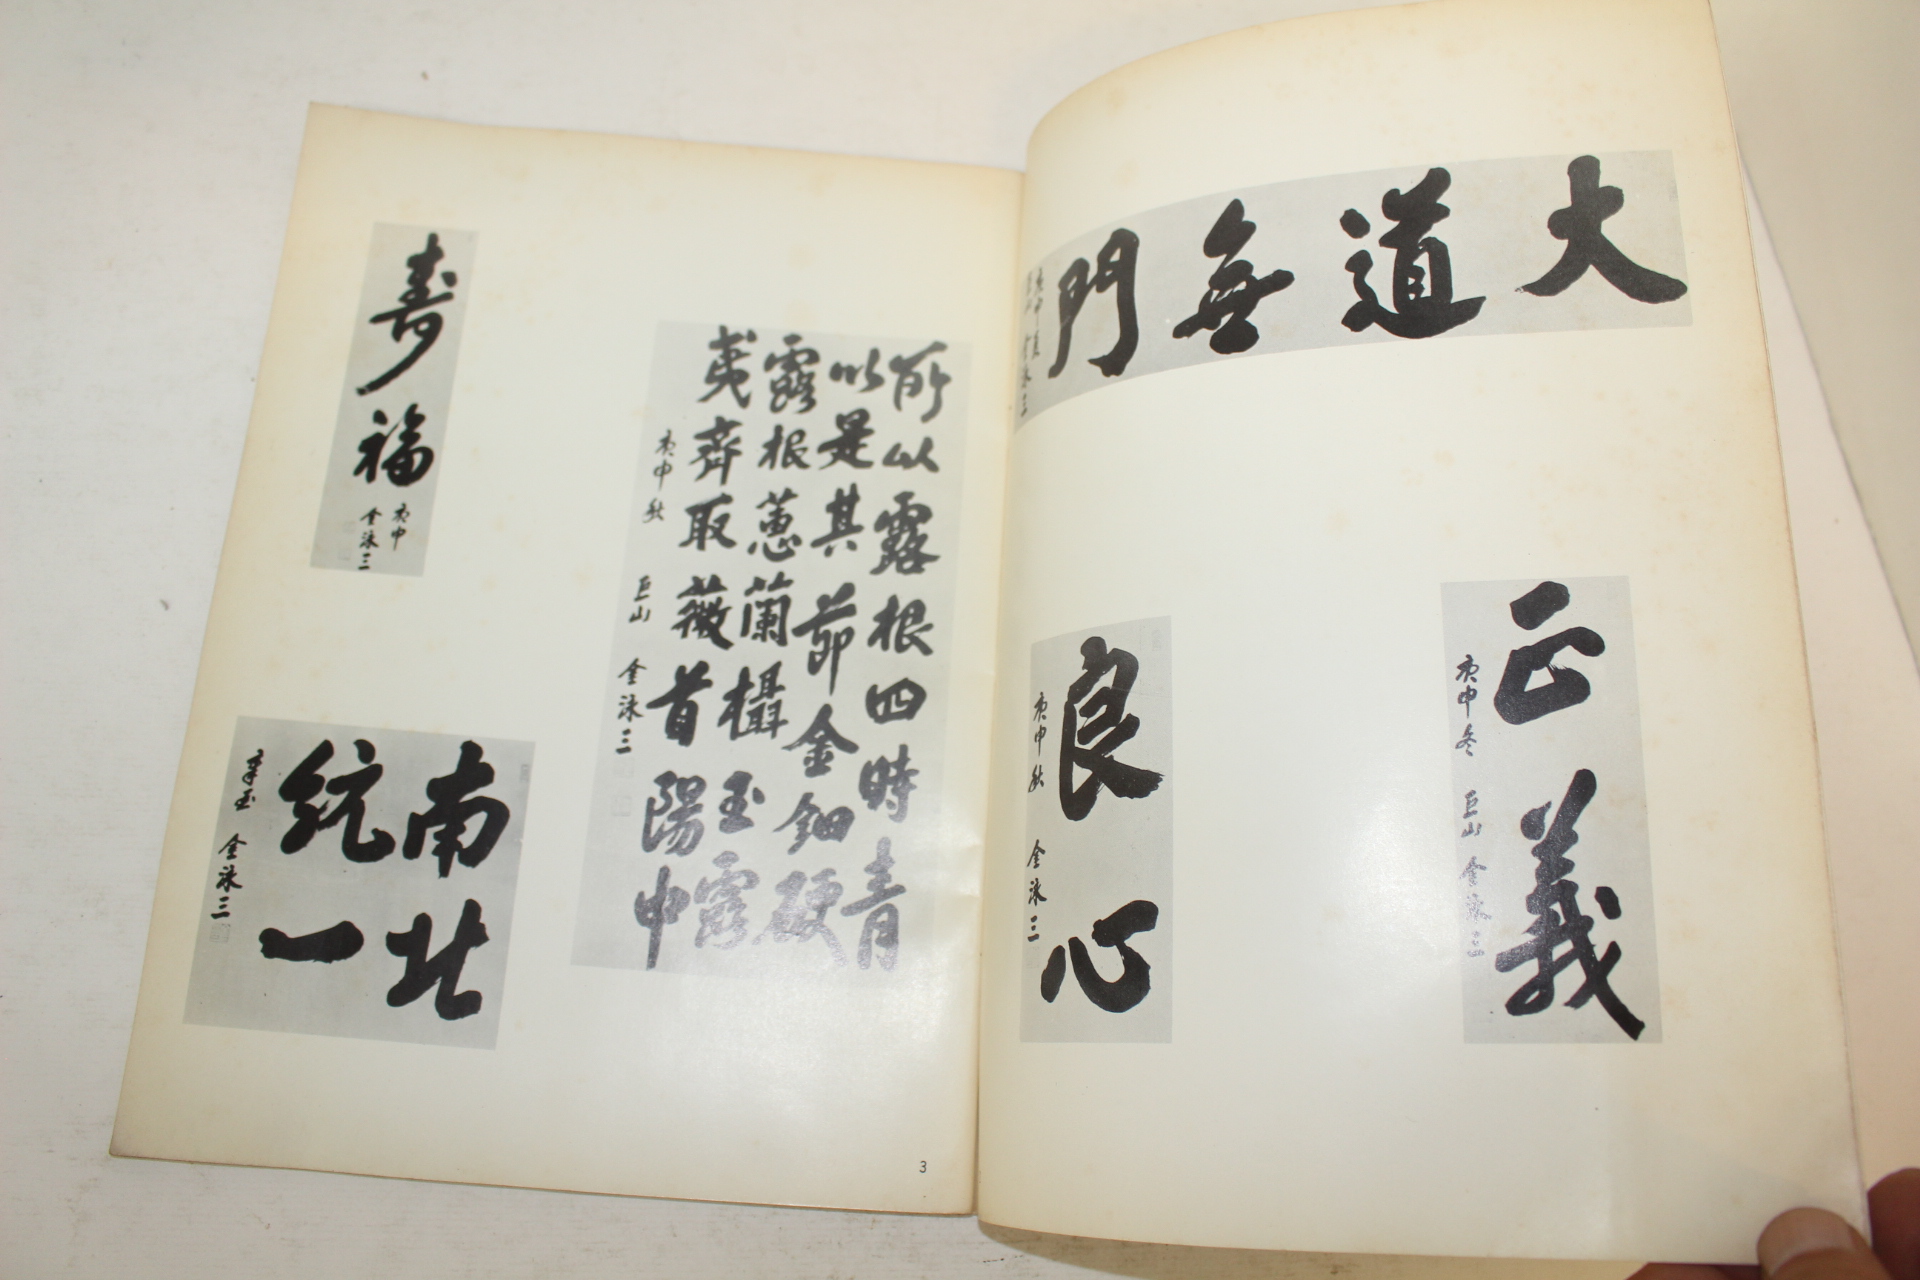 壽福
庚申
金泳三
所以露根四時青
以是其節金鈿硬
露根蕙蘭玉露
夷齊取薇首陽中
庚申秋 巨山 金泳三
南北
統一
辛酉 金泳三
3
大道無門
庚申夏
巨山 金泳三
正義
庚申冬 巨山 金泳三
良心
庚申秋 金泳三